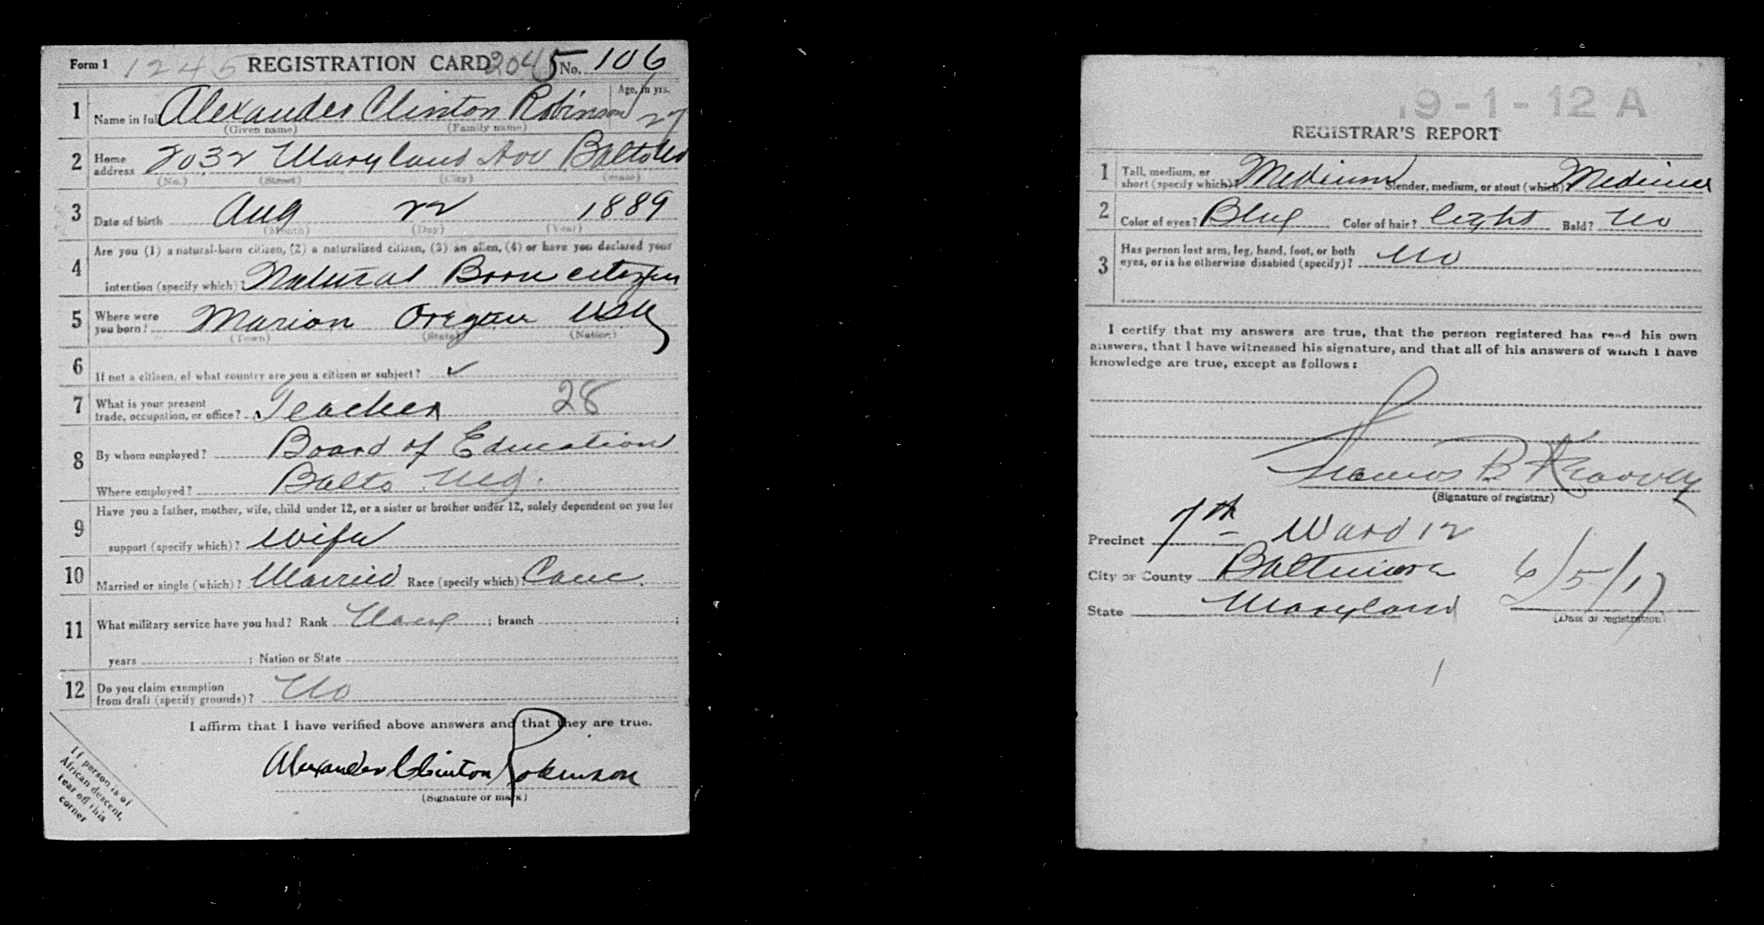 Form 1 1245 REGISTRATION CARD 2045 No. 106
1 Name in full Alexander Clinton Robinson Age, in yrs. 27
(Given name) (Family name)
2 Home address 2032 Maryland Ave Balto Md
(No.) (Street) (City) (State)
3 Date of birth Aug 22 1889
(Month) (Day) (Year)
Are you (1) a natural-born citizen, (2) a naturalized citizen, (3) an alien, (4) or have you declared your
4 intention (specify which)? Natural Born citizen
5 Where were you born? Marion Oregon USA
(Town) (State) (Nation)
6 If not a citizen, of what country are you a citizen or subject? ✓
7 What is your present trade, occupation, or office? Teacher 28
8 By whom employed? Board of Education
Where employed? Balto Md.
9 Have you a father, mother, wife, child under 12, or a sister or brother under 12, solely dependent on you for
support (specify which)? Wife
10 Married or single (which)? Married Race (specify which)? Cauc.
11 What military service have you had? Rank None ; branch ;
years ; Nation or State
12 Do you claim exemption from draft (specify grounds)? No
I affirm that I have verified above answers and that they are true.
Alexander Clinton Robinson
(Signature or mark)
If person is of
African descent,
tear off this
corner
19-1-12 A
REGISTRAR'S REPORT
1 Tall, medium, or short (specify which)? Medium Slender, medium, or stout (which)? Medium
2 Color of eyes? Blue Color of hair? light Bald? No
3 Has person lost arm, leg, hand, foot, or both eyes, or is he otherwise disabled (specify)? No
I certify that my answers are true, that the person registered has read his own
answers, that I have witnessed his signature, and that all of his answers of which I have
knowledge are true, except as follows:
B
(Signature of registrar)
Precinct 7th Ward 12
City or County Baltimore
State Maryland 6/5/17
(Date of registration)